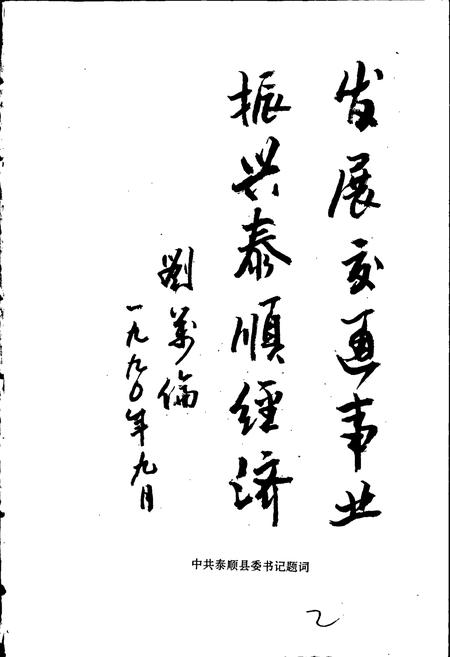 发展交通事业
振兴泰顺经济
劉萬倫
一九九〇年九月
中共泰顺县委书记题词
2